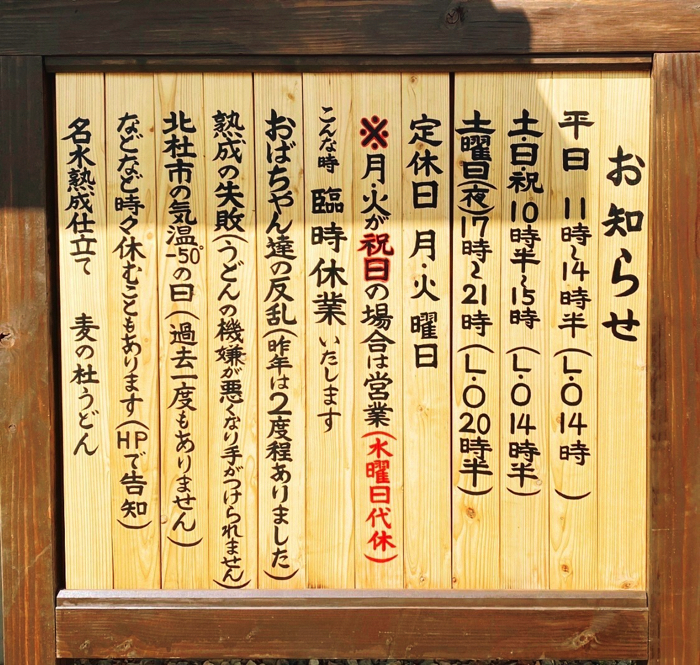 お知らせ
平日 11時〜14時半(L・O14時)
土・日・祝 10時半〜15時(L・O14時半)
土曜日(夜)17時〜21時(L・O20時半)
定休日 月・火曜日
※月・火が祝日の場合は営業(水曜日代休)
こんな時 臨時休業いたします
おばちゃん達の反乱(昨年は2度程ありました)
熟成の失敗(うどんの機嫌が悪くなり手がつけられません)
北杜市の気温-50°の日(過去一度もありません)
などなど時々休むこともあります(HPで告知)
名水熟成仕立て 麦の杜うどん